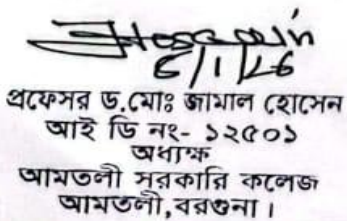 Hossain
6/1/26
প্রফেসর ড.মোঃ জামাল হোসেন
আই ডি নং- ১২৫০১
অধ্যক্ষ
আমতলী সরকারি কলেজ
আমতলী,বরগুনা।